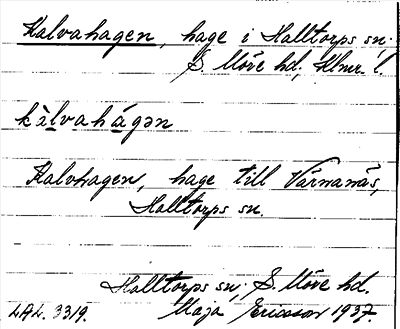 Kalvahagen, hage i Halltorps sn.
S. Möre hd, Klmr. l.
kàlvahágən
Kalvhagen, hage till Värnanäs,
Halltorps sn.
Halltorps sn, S. Möre hd.
LAL. 3319. Maja Ericsson 1937.